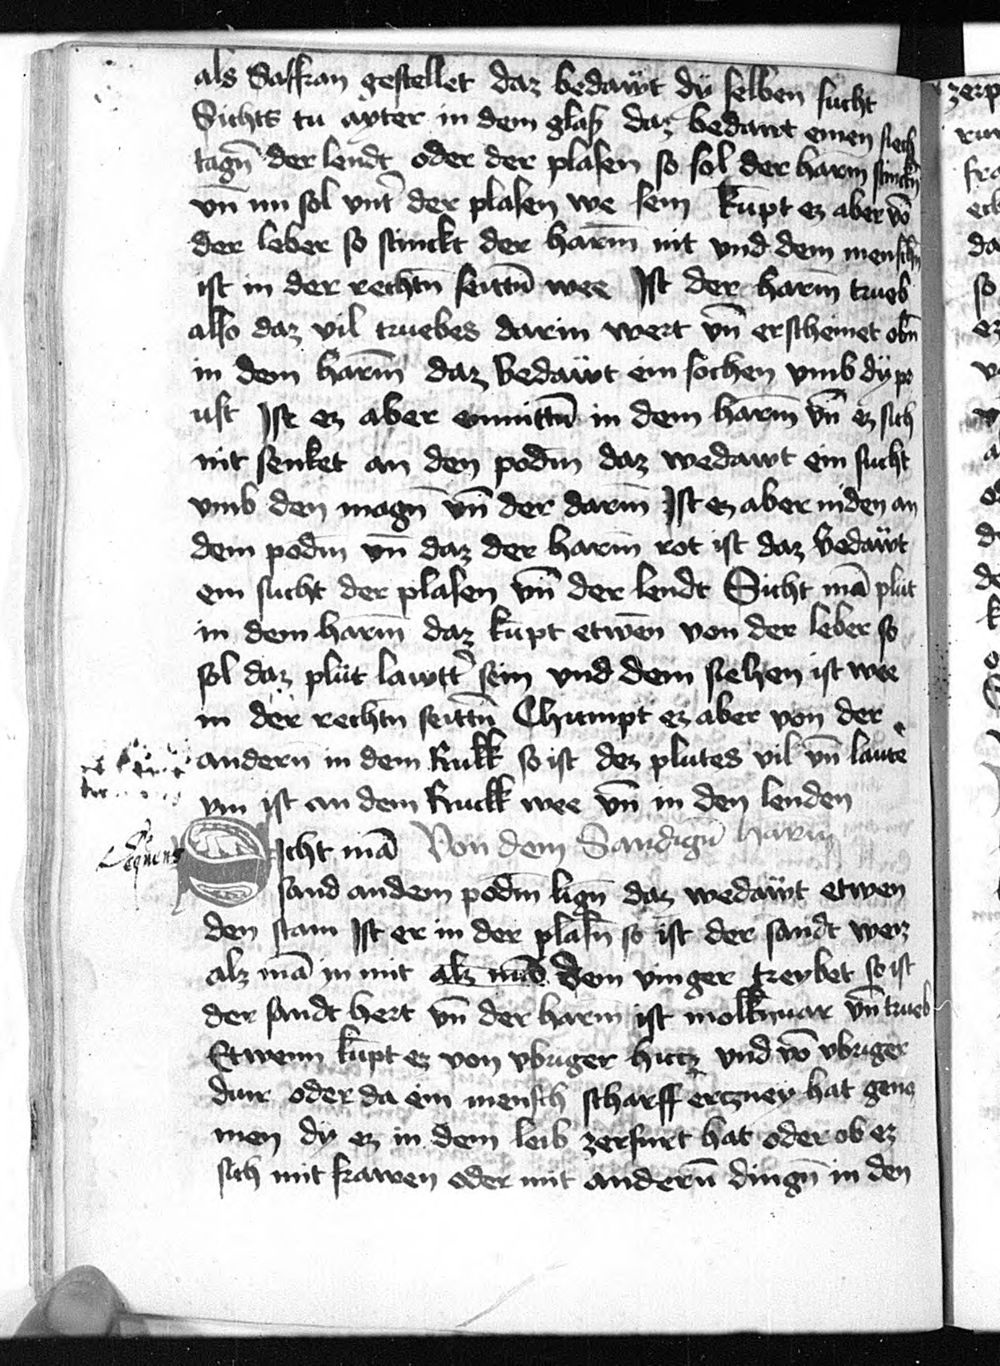 als saffran gestellet daz bedäwt dy selben sucht
Sichts tu ayter in dem glaß daz bedawt einen siech
tagñ der lendt oder der plasen so sol der harm̄ stinckñ
vn̄ im sol vnt' der plasen we sein kūpt ez aber vō
der leber so stinckt der harm̄ nit vnd dem menschñ
ist in der rechtñ seittñ wee Ist der harm̄ trueb
also daz vil truebes darin wert vn̄ erscheinet obñ
in dem harm̄ daz bedäwt ein sochen vmb dy pr
ust Ist ez aber enmittñ in dem harm̄ vn̄ ez sich
nit senket an den podm̄ daz wedawt ein sucht
vmb den magñ vn̄ der darm̄ Ist ez aber niden an
dem podm̄ vn̄ daz der harm̄ rot ist daz bedäwt
ein sucht der plasen vn̄ der lendt Sicht mā plüt
in dem harm̄ daz kūpt etwen von der leber so
sol daz plüt lawtt' sein vnd dem siehen ist wee
in der rechtñ seittñ Chumpt ez aber von der
anderñ in dem Rukk so ist dez plutes vil vn̄ laut'
ym ist an dem Ruckk wee vn̄ in den lenden
Sicht mā Von dem Sandigñ harm
sand an dem podm̄ ligñ daz wedäwt etwen
den stain Ist er in der plasñ so ist der sandt weiz
alz mā in mit alz mā dem vinger treybet so ist
der sandt hert vn̄ der harm̄ ist molkūuar vn̄ trueb
Etwenn kūpt ez von vbriger hicz vnd vō vbriger
durr oder da ein mensch scharff erczney hat geno
men dy ez in dem leib zerfurt hat oder ob ez
sich mit frawen oder mit anderñ dingñ in den